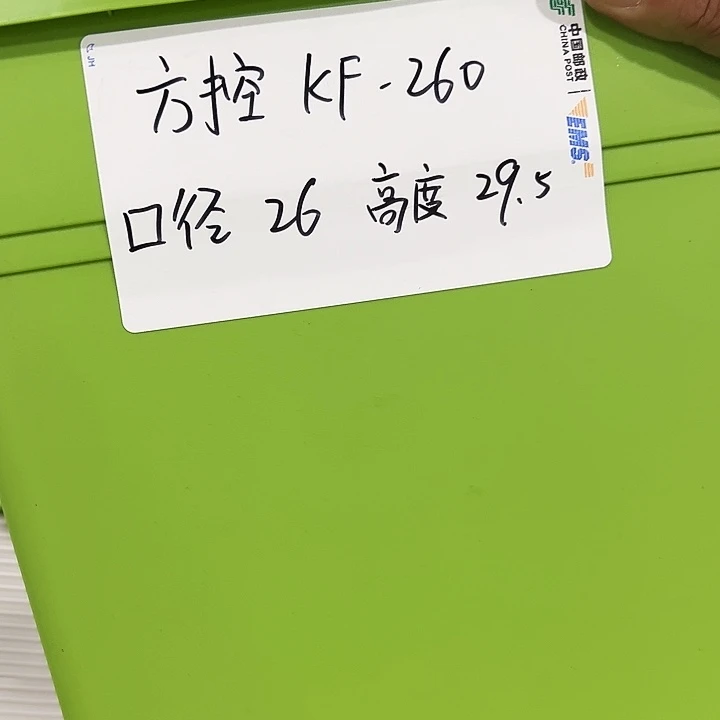 方控 KF-260
口径 26 高度 29.5
中国邮政
CHINA POST
EMS